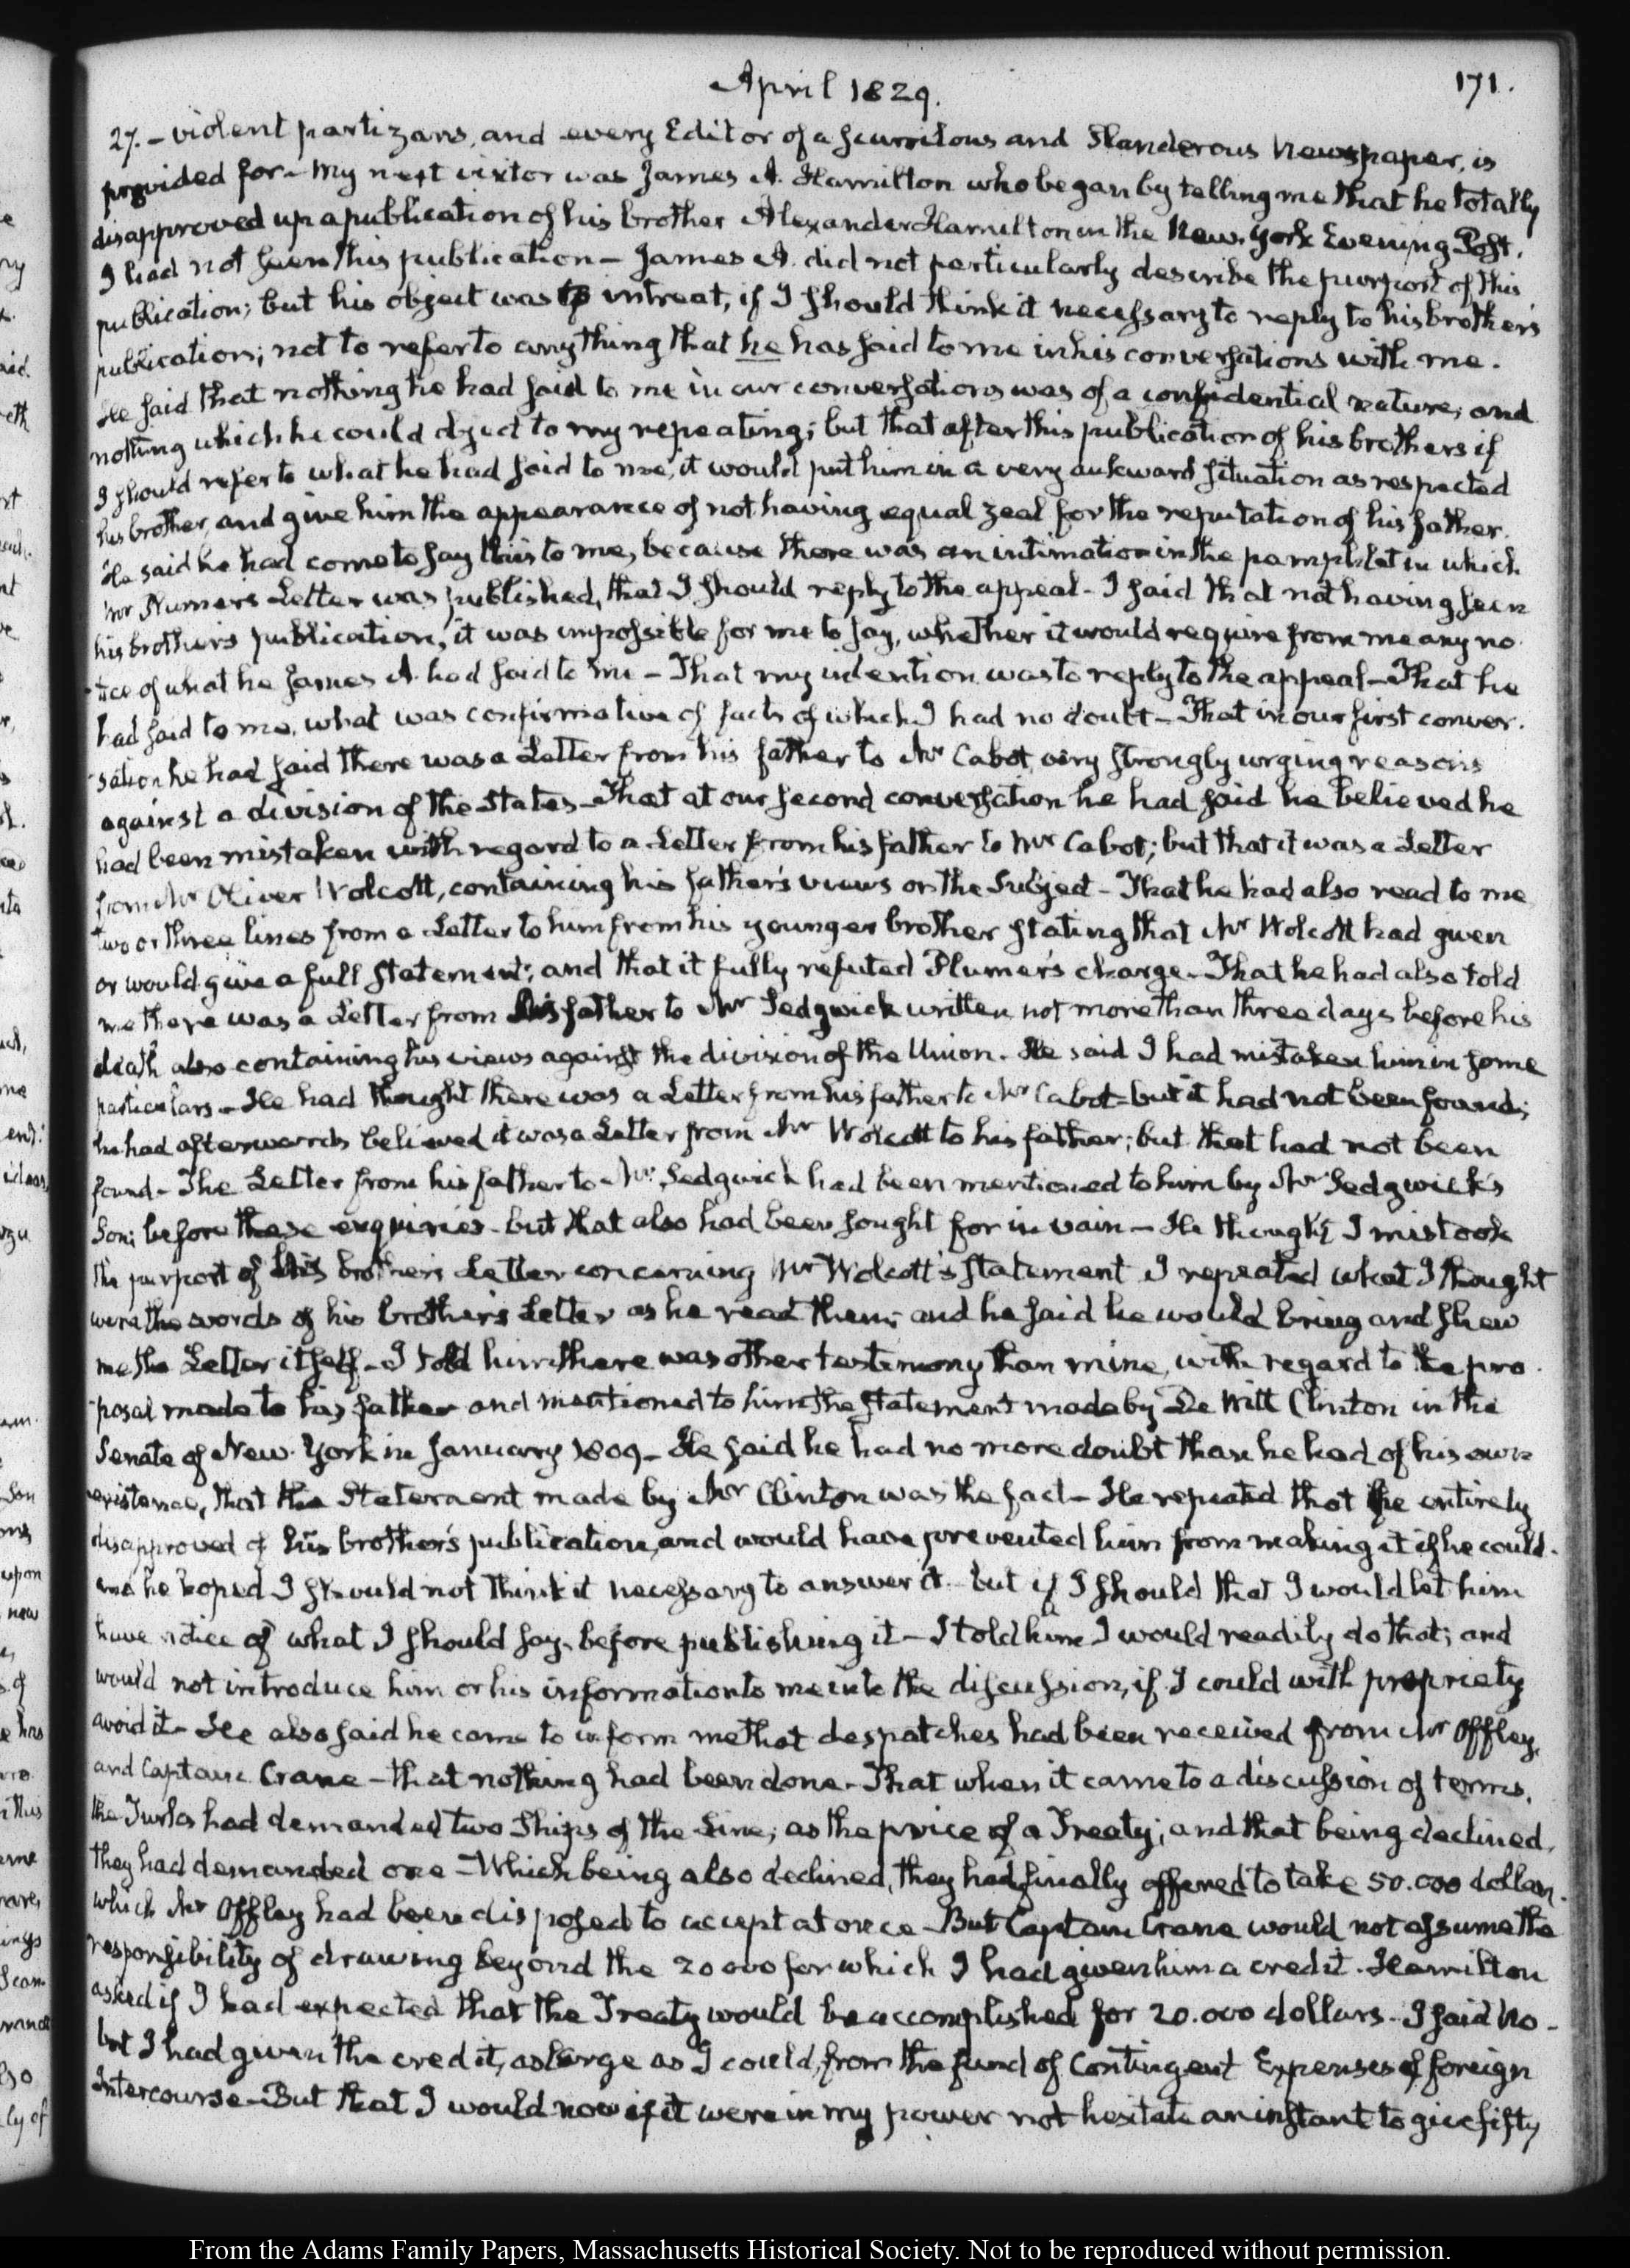 April 1829.
171.
27. - violent partizans, and every Editor of a scurrilous and slanderous Newspaper, is
provided for - My next visitor was James A. Hamilton who began by telling me that he totally
disapproved up a publication of his brother Alexander Hamilton in the New-York Evening Post.
I had not seen this publication - James A. did not particularly describe the purport of this
publication; but his object was to intreat, if I should think it necessary to reply to his brother's
publication; not to refer to anything that he has said to me in his conversations with me.
He said that nothing he had said to me in our conversations was of a confidential nature, and
nothing which he could object to my repeating; but that after this publication of his brothers if
I should refer to what he had said to me, it would put him in a very aukward situation as respected
his brother, and give him the appearance of not having equal zeal for the reputation of his father.
He said he had come to say this to me, because there was an intimation in the pamphlet in which
Mr Plumer's Letter was published, that I should reply to the appeal - I said that not having seen
his brother's publication, it was impossible for me to say, whether it would require from me any no
-tice of what he James A. had said to me - That my intention was to reply to the appeal - That he
had said to me, what was confirmative of facts of which I had no doubt - That in our first conver-
-sation he had said there was a Letter from his father to Mr Cabot, very strongly urging reasons
against a division of the States - That at our second conversation he had said he believed he
had been mistaken with regard to a Letter from his father to Mr Cabot; but that it was a Letter
from Mr Oliver Wolcott, containing his father's views on the Subject - That he had also read to me
two or three lines from a Letter to him from his younger brother stating that Mr Wolcott had given
or would give a full statement; and that it fully refuted Plumer's charge - That he had also told
me there was a Letter from his father to Mr Sedgwick written not more than three days before his
death also containing his views against the division of the Union. He said I had mistaken him in some
particulars - He had thought there was a Letter from his father to Mr Cabot - but it had not been found;
he had afterwards believed it was a Letter from Mr Wolcott to his father; but that had not been
found - The Letter from his father to Mr Sedgwick had been mentioned to him by Mr Sedgwick's
Son; before these enquiries - but that also had been sought for in vain - He thought I mistook
the purport of his brother's Letter concerning Mr Wolcott's statement I repeated what I thought
were the words of his brother's Letter as he read them; and he said he would bring and shew
me the Letter itself - I told him there was other testimony than mine, with regard to the pro
-posal made to his father and mentioned to him the statement made by De Witt Clinton in the
Senate of New-York in January 1809 - He said he had no more doubt than he had of his own
existence, that the Statement made by Mr Clinton was the fact - He repeated that he entirely
disapproved of his brother's publication, and would have prevented him from making it if he could.
and he hoped I should not think it necessary to answer it - but if I should that I would let him
have notice of what I should say, before publishing it - I told him I would readily do that; and
would not introduce him or his information to me into the discussion, if I could with propriety
avoid it - He also said he came to inform me that despatches had been received from Mr Offley,
and Captain Crane - that nothing had been done - That when it came to a discussion of terms,
the Turks had demanded two Ships of the Line; as the price of a Treaty; and that being declined,
they had demanded one - Which being also declined, they had finally offered to take 50.000 dollars.
which Mr Offley had been disposed to accept at once - But Captain Crane would not assume the
responsibility of drawing beyond the 20 000 for which I had given him a credit. Hamilton
asked if I had expected that the Treaty would be accomplished for 20.000 dollars - I said no -
but I had given the credit, as large as I could, from the fund of Contingent Expenses of foreign
Intercourse - But that I would now if it were in my power not hesitate an instant to give fifty
From the Adams Family Papers, Massachusetts Historical Society. Not to be reproduced without permission.